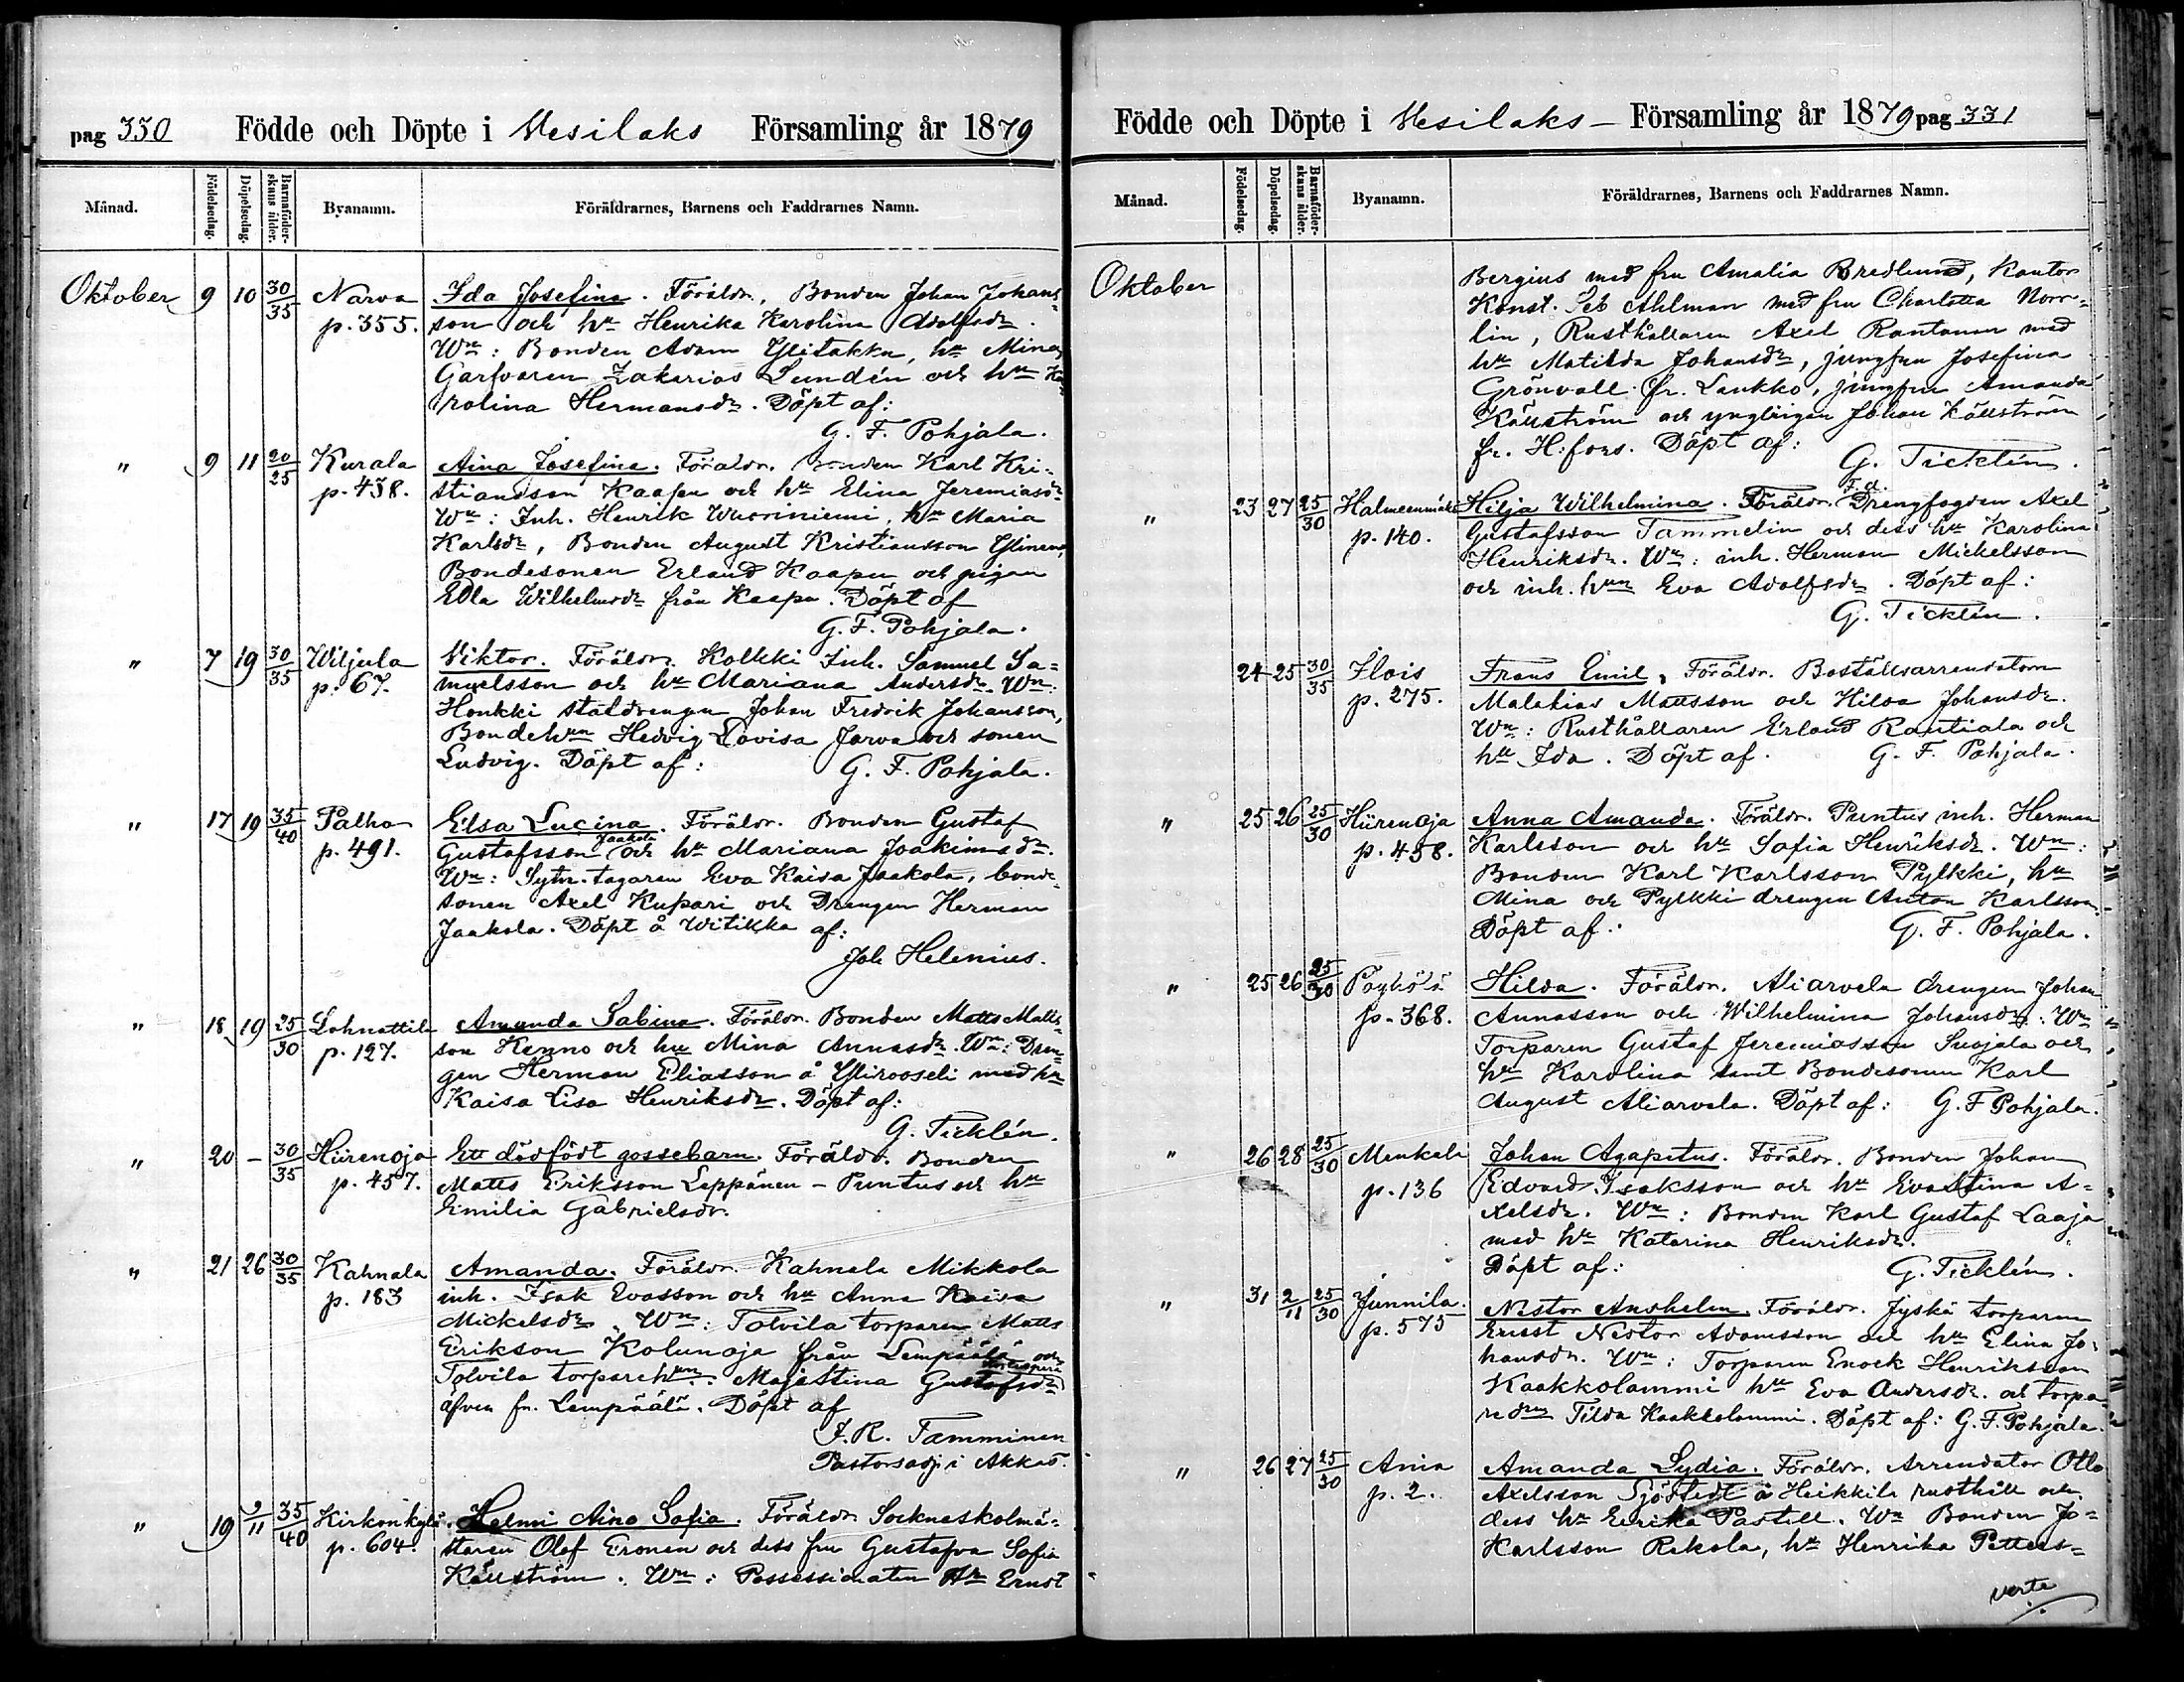 pag 330 Födde och Döpte i Vesilaks Församling år 1879
Månad. Födelsedag. Döpelsedag. Barnaföderskans ålder. Byanamn. Föräldrarnes, Barnens och Faddrarnes Namn.
Oktober 9 10 30/35 Narva Ida Josefina. Föräldr. Bonden Johan Johans-
p. 355. son och hu Henrika Karolina Adolfsdr.
Wn: Bonden Adam Ylitakku, hu Mina,
Garfvaren Zakarias Lundén och hu Ka-
rolina Hermansdr. Döpt af:
G. F. Pohjala.
" 9 11 20/25 Kurala Aina Josefina. Föräldr. Bonden Karl Kri-
p. 438. stiansson Kaapu och hu Elina Jeremiasdr
Wn: Inh. Henrik Wuoriniemi, hu Maria
Karlsdr, Bonden August Kristiansson Ylinen,
Bondesonen Erland Kaapu och pigan
Edla Wilhelmsdr från Kaapu. Döpt af
G. F. Pohjala.
" 7 19 30/35 Wiljula Viktor. Föräldr. Kolkki Inh. Samuel Sa-
p. 67. muelsson och hu Mariana Andersdr. Wn:
Honkki statdrengen Johan Fredrik Johansson,
Bondehun Hedvig Lovisa Jarva och sonen
Ludvig. Döpt af: G. F. Pohjala.
" 17 19 35/40 Palho Elsa Lucina. Föräldr. Bonden Gustaf
p. 491. Gustafsson Jaakola och hu Mariana Joakimsdr.
Wn: Sytn. tagaren Eva Kaisa Jaakola, bonde-
sonen Axel Kupari och Drengen Herman
Jaakola. Döpt å Witikka af:
Joh Helenius.
" 18 19 25/30 Lahnattila Amanda Sabina. Föräldr. Bonden Matts Matts-
p. 127. son Kenno och hu Mina Annasdr. Wn: Dren-
gen Herman Eliasson å Ylirooseli med hu
Kaisa Lisa Henriksdr. Döpt af:
G. Ticklén.
" 20 - 30/35 Hiirenoja Ett dödfödt gossebarn. Föräldr. Bonden
p. 457. Matts Eriksson Leppänen - Puntus och hu
Emilia Gabrielsdr.
" 21 26 30/35 Kahnala Amanda. Föräldr. Kahnala Mikkola
p. 183 inh. Isak Evasson och hu Anna Kaisa
Mickelsdr. Wn: Tolvila torparen Matts
Erikson Kolunoja från Lempäälä och
Tolvila torparehun. Majastina Gustafsdr
äfven fr. Lempäälä. Döpt af
J. R. Tamminen
Pastorsadj i Akkas.
" 19 2/11 35/40 Kirkonkylä Helmi Aino Sofia. Föräldr Sockneskolmä-
p. 604. staren Olof Eronen och dess fru Gustafva Sofia
Källström. Wn: Possessionaten Hr Ernst
Födde och Döpte i Vesilaks - Församling år 1879 pag 331
Månad. Födelsedag. Döpelsedag. Barnaföderskans ålder. Byanamn. Föräldrarnes, Barnens och Faddrarnes Namn.
Oktober Bergius med fru Amalia Bredlund, Kantor
Konst. Seb Ahlman med fru Charlotta Norr-
lin, Rusthållaren Axel Rantanen med
hu Matilda Johansdr, jungfru Josefina
Grönvall fr. Laukko, jungfru Amanda
Källström och ynglingen Johan Källström
fr. H:fors. Döpt af:
G. Ticklén.
" 23 27 25/30 Halmeenmäki Hilja Wilhelmina. Föräldr. F.d. Drengfogden Axel
p. 140. Gustafsson Tammelin och dess hu Karolina
Henriksdr. Wn: inh. Herman Mickelsson
och inh. hun Eva Adolfsdr. Döpt af:
G. Ticklén.
24 25 30/35 Ilois Frans Emil. Föräldr. Boställsarrendatorn
p. 275. Malakias Mattsson och Hilda Johansdr.
Wn: Rusthållaren Erland Rautiala och
hu Ida. Döpt af. G. F. Pohjala.
" 25 26 25/30 Hiirenoja Anna Amanda. Föräldr. Puntus inh. Herman
p. 458. Karlsson och hu Sofia Henriksdr. Wn:
Bonden Karl Karlsson Pylkki, hu
Mina och Pylkki drengen Anton Karlsson.
Döpt af: G. F. Pohjala.
" 25 26 25/30 Pöyhölä Hilda. Föräldr. Aliarvela drengen Johan
p. 368. Annasson och Wilhelmina Johansdr. Wn
Torparen Gustaf Jeremiasson Suojala och
hu Karolina samt Bondesonen Karl
August Aliarvela. Döpt af: G. F Pohjala.
" 26 28 25/30 Menkala Johan Agapetus. Föräldr. Bonden Johan
p. 136 Edvard Isaksson och hu Evastina A-
xelsdr. Wn: Bonden Karl Gustaf Laaja
med hu Katarina Henriksdr.
Döpt af: G. Ticklén.
" 31 2/11 25/30 Junnila. Nestor Anshelm. Föräldr. Jyskä torparen
p. 575 Ernst Nestor Adamsson och hu Elina Jo-
hansdr. Wn: Torparen Enock Henriksson
Kaakkolammi hu Eva Andersdr. och torpa-
redrn Tilda Kaakkolammi. Döpt af: G. F. Pohjala.
" 26 27 25/30 Ania Amanda Lydia. Föräldr. Arrendator Otto
p. 2. Axelsson Sjöstedt å Heikkilä rusthåll och
dess hu Eerika Pastell. Wn Bonden Jo-
Karlsson Rekola, hu Henrika Petters-
verte